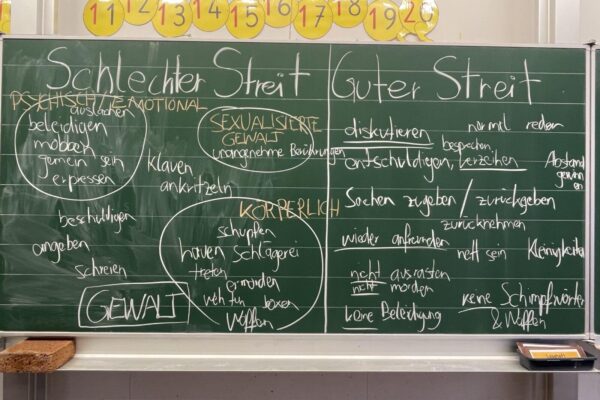 11 12 13 14 15 16 17 18 19 20
Schlechter Streit
PSHISCH/EMOTIONAL
auslachen
beleidigen
mobben
gemein sein
erpressen
SEXUALISIERTE
GEWALT
unangenehme Berührungen
Klauen
ankritzeln
beschuldigen
angeben
schreien
GEWALT
KÖRPERLICH
schupfen
hauen Schlägerei
treten
ermorden
weh tun boxen
Waffen
Guter Streit
diskutieren normal reden
besprechen
entschuldigen, verzeihen
Abstand
gewinn
en
Sachen zugeben / zurückgeben
zurücknehmen
wieder anfreunden nett sein Kleinigkeiten
nicht ausrasten
nicht morden
keine Beleidigung
keine Schimpfwörter
& Waffen